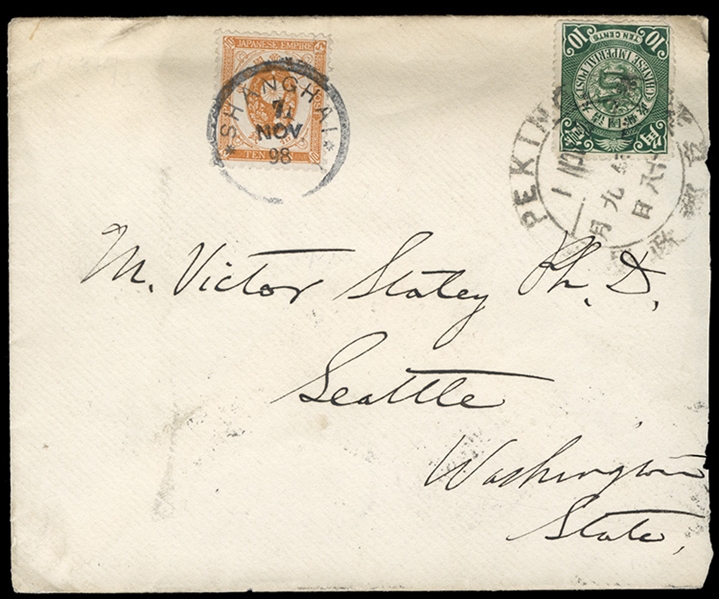 JAPANESE EMPIRE
TEN
*SHANGHAI*
7
NOV
98
TEN CENTS
10 10
CHINESE IMPERIAL POST
PEKING
1
九月
十八日
M. Victor Staley Ph. D.
Seattle
Washington
State,